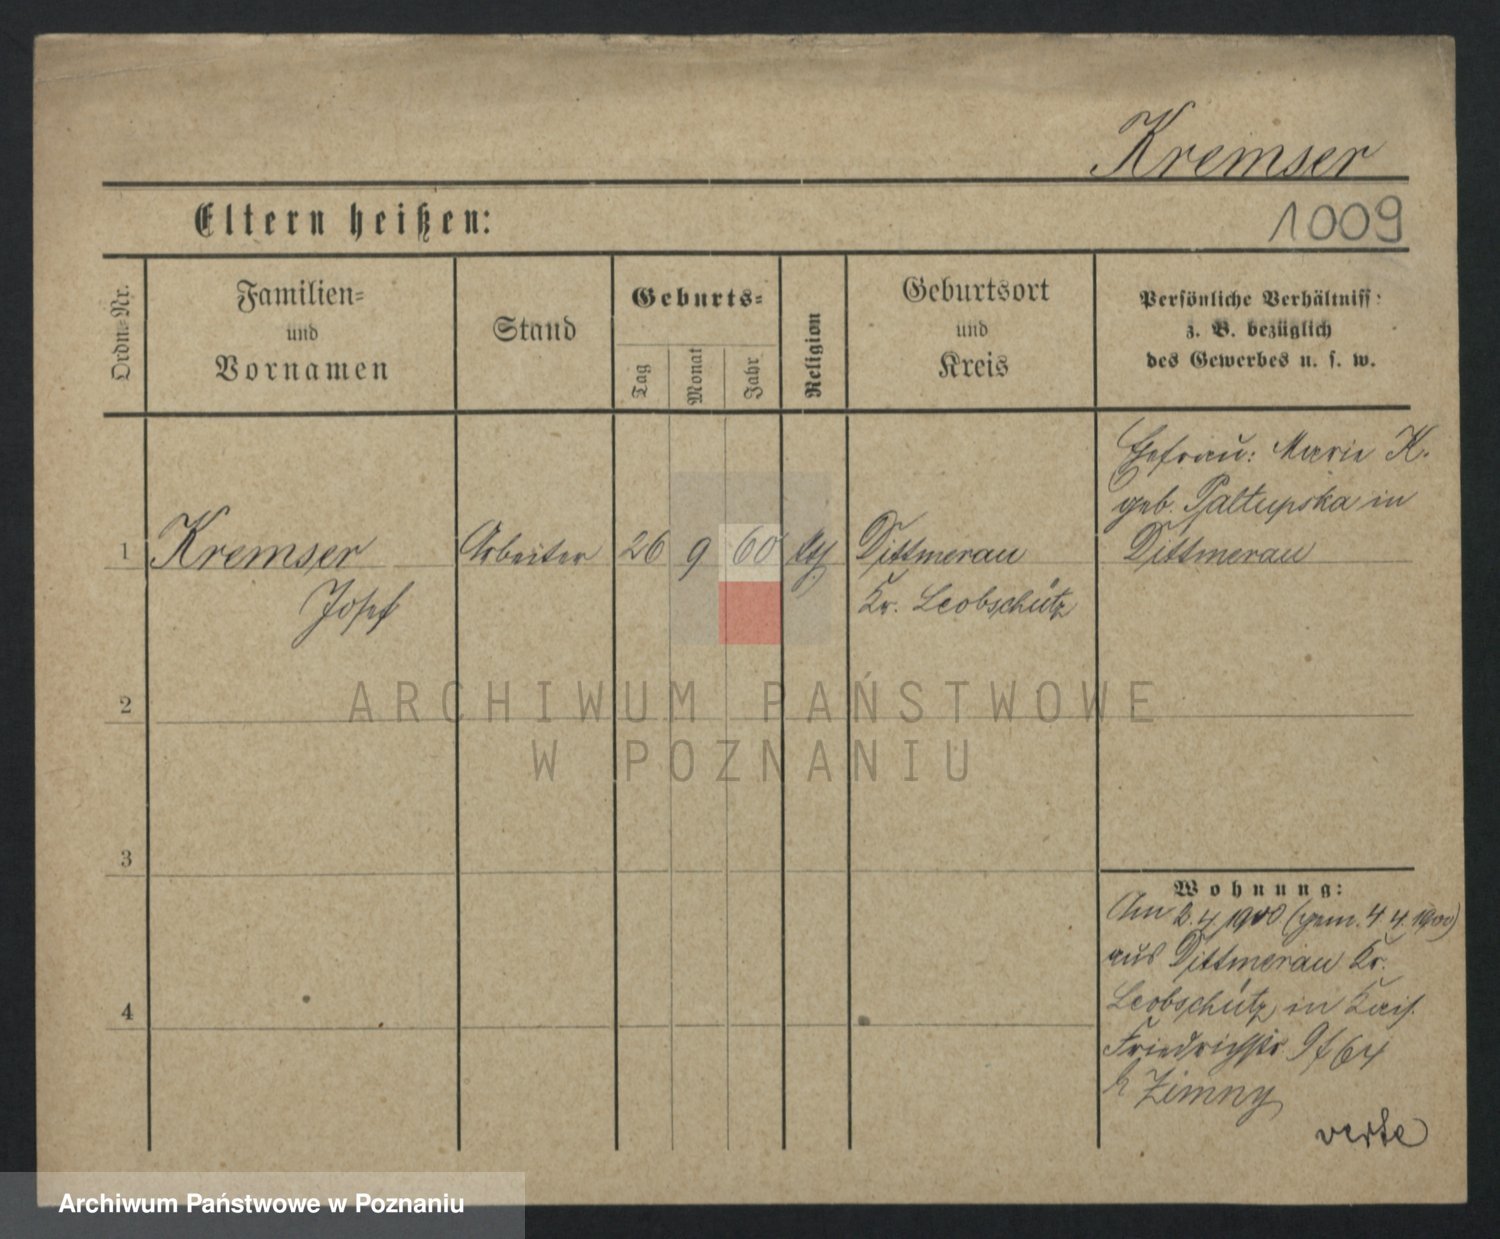 Kremser
Eltern heißen:
1009
Ordn.-Nr.
Familien-
und
Vornamen
Stand
Geburts-
Tag
Monat
Jahr
Religion
Geburtsort
und
Kreis
Persönliche Verhältniss:
z. B. bezüglich
des Gewerbes u. s. w.
Ehefrau: Marie K.
geb. in
Dittmerau
1 Kremser Arbeiter 26 9 60 Dittmerau
Josef Kr. Leobschütz
2
ARCHIWUM PAŃSTWOWE
W POZNANIU
3
Wohnung:
Am 2.4 1900 (gem. 4.4.1900)
aus Dittmerau Kr.
Leobschütz in Kais.
Friedrichstr.
4
Zimny
verte
Archiwum Państwowe w Poznaniu